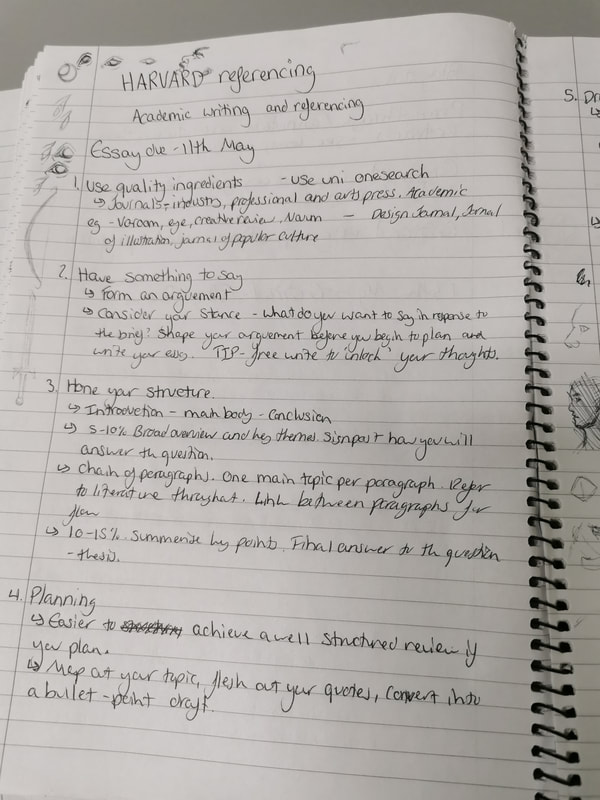 HARVARD referencing
Academic writing and referencing
Essay due - 11th May
1. Use quality ingredients - Use uni onesearch
↳ Journals - industry, professional and arts press. Academic
eg - Varoom, eye, creative review, Naum — Design Jornal, Jornal
of illustration, journal of popular culture
2. Have something to say
↳ Form an arguement
↳ Consider your stance - what do you want to say in response to
the brief? Shape your arguement before you begin to plan and
write your essay. TIP - free write to 'unlock' your thoughts.
3. Hone your structure.
↳ Introduction - main body - Conclusion
↳ 5-10% Broad overview and key themes. Signpost how you will
answer th question.
↳ Chain of peragraphs. One main topic per paragraph. Refer
to literature throughat. Link between paragraphs for
flow
↳ 10-15% Summerise key points. Final answer to th question
- thesis.
4. Planning
↳ Easier to achieve a well structured review if
you plan.
↳ Map out your topic, flesh out your quotes, convert into
a bullet-point draft.
5. Dr